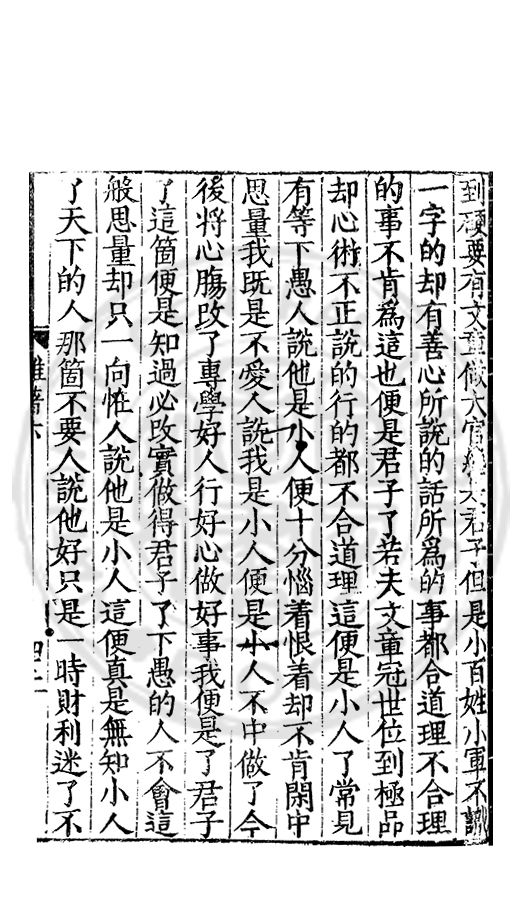 到硬要有文章做大官纔是君子但是小百姓小軍不識
一字的却有善心所說的話所爲的事都合道理不合理
的事不肯爲這也便是君子了若夫文章冠世位到極品
却心術不正說的行的都不合道理這便是小人了常見
有等下愚人說他是小人便十分惱着恨着却不肯閑中
思量我既是不愛人說我是小人便是小人不中做了今
後將心膓改了專學好人行好心做好事我便是了君子
了這箇便是知過必改實做得君子了下愚的人不會這
般思量却只一向恠人說他是小人這便真是無知小人
了天下的人那箇不要人說他好只是一時財利迷了不
雜著六